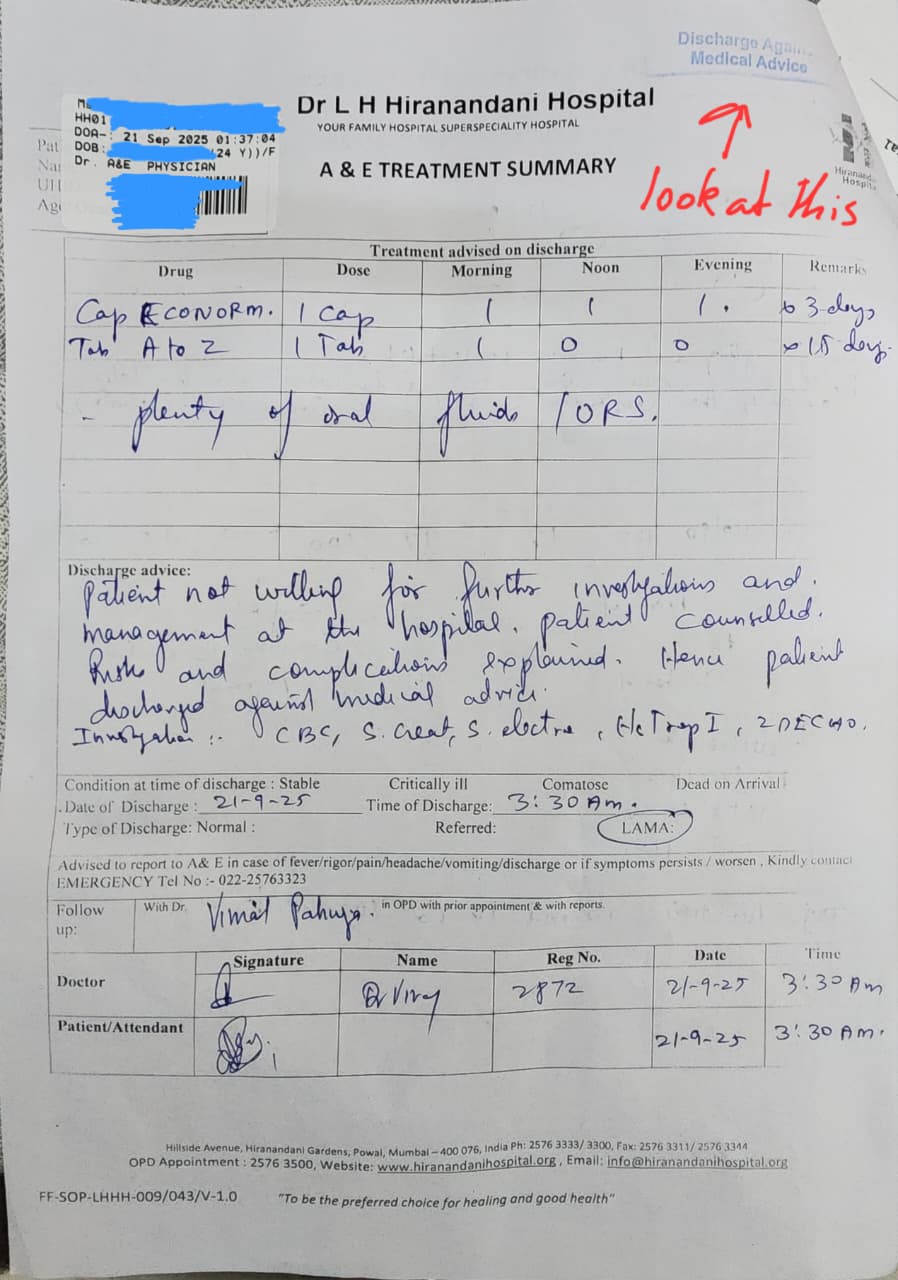 Discharge Again
Medical Advice
Dr L H Hiranandani Hospital
YOUR FAMILY HOSPITAL SUPERSPECIALITY HOSPITAL
HH01
DOA-: 21 Sep 2025 01:37:04
DOB: 24 Y))/F
Dr. A&E PHYSICIAN
Pat
Nar
UH
Age
A & E TREATMENT SUMMARY
look at this
Hiranand
Hospita
Treatment advised on discharge
Drug Dose Morning Noon Evening Remarks
Cap ECONORM. 1 Cap 1 1 1. x 3 days
Tab A to Z 1 Tab 1 0 0 x 15 days
- plenty of oral fluids / ORS.
Discharge advice:
Patient not willing for further investigations and
management at the hospital. patient counselled.
Risk and complications explained. Hence patient
discharged against medical advice.
Investigation :- CBC, S. Creat, S. electro, Trop I, 2D ECHO.
Condition at time of discharge : Stable Critically ill Comatose Dead on Arrival
Date of Discharge : 21-9-25 Time of Discharge: 3:30 Am.
Type of Discharge: Normal : Referred: LAMA:
Advised to report to A& E in case of fever/rigor/pain/headache/vomiting/discharge or if symptoms persists / worsen , Kindly contact
EMERGENCY Tel No :- 022-25763323
Follow up: With Dr. Vimal Pahuja. in OPD with prior appointment & with reports.
Signature Name Reg No. Date Time
Doctor Dr 2872 21-9-25 3:30 Am
Patient/Attendant 21-9-25 3:30 Am.
Hillside Avenue, Hiranandani Gardens, Powai, Mumbai – 400 076, India Ph: 2576 3333/ 3300, Fax: 2576 3311/ 2576 3344
OPD Appointment : 2576 3500, Website: www.hiranandanihospital.org , Email: info@hiranandanihospital.org
FF-SOP-LHHH-009/043/V-1.0 "To be the preferred choice for healing and good health"